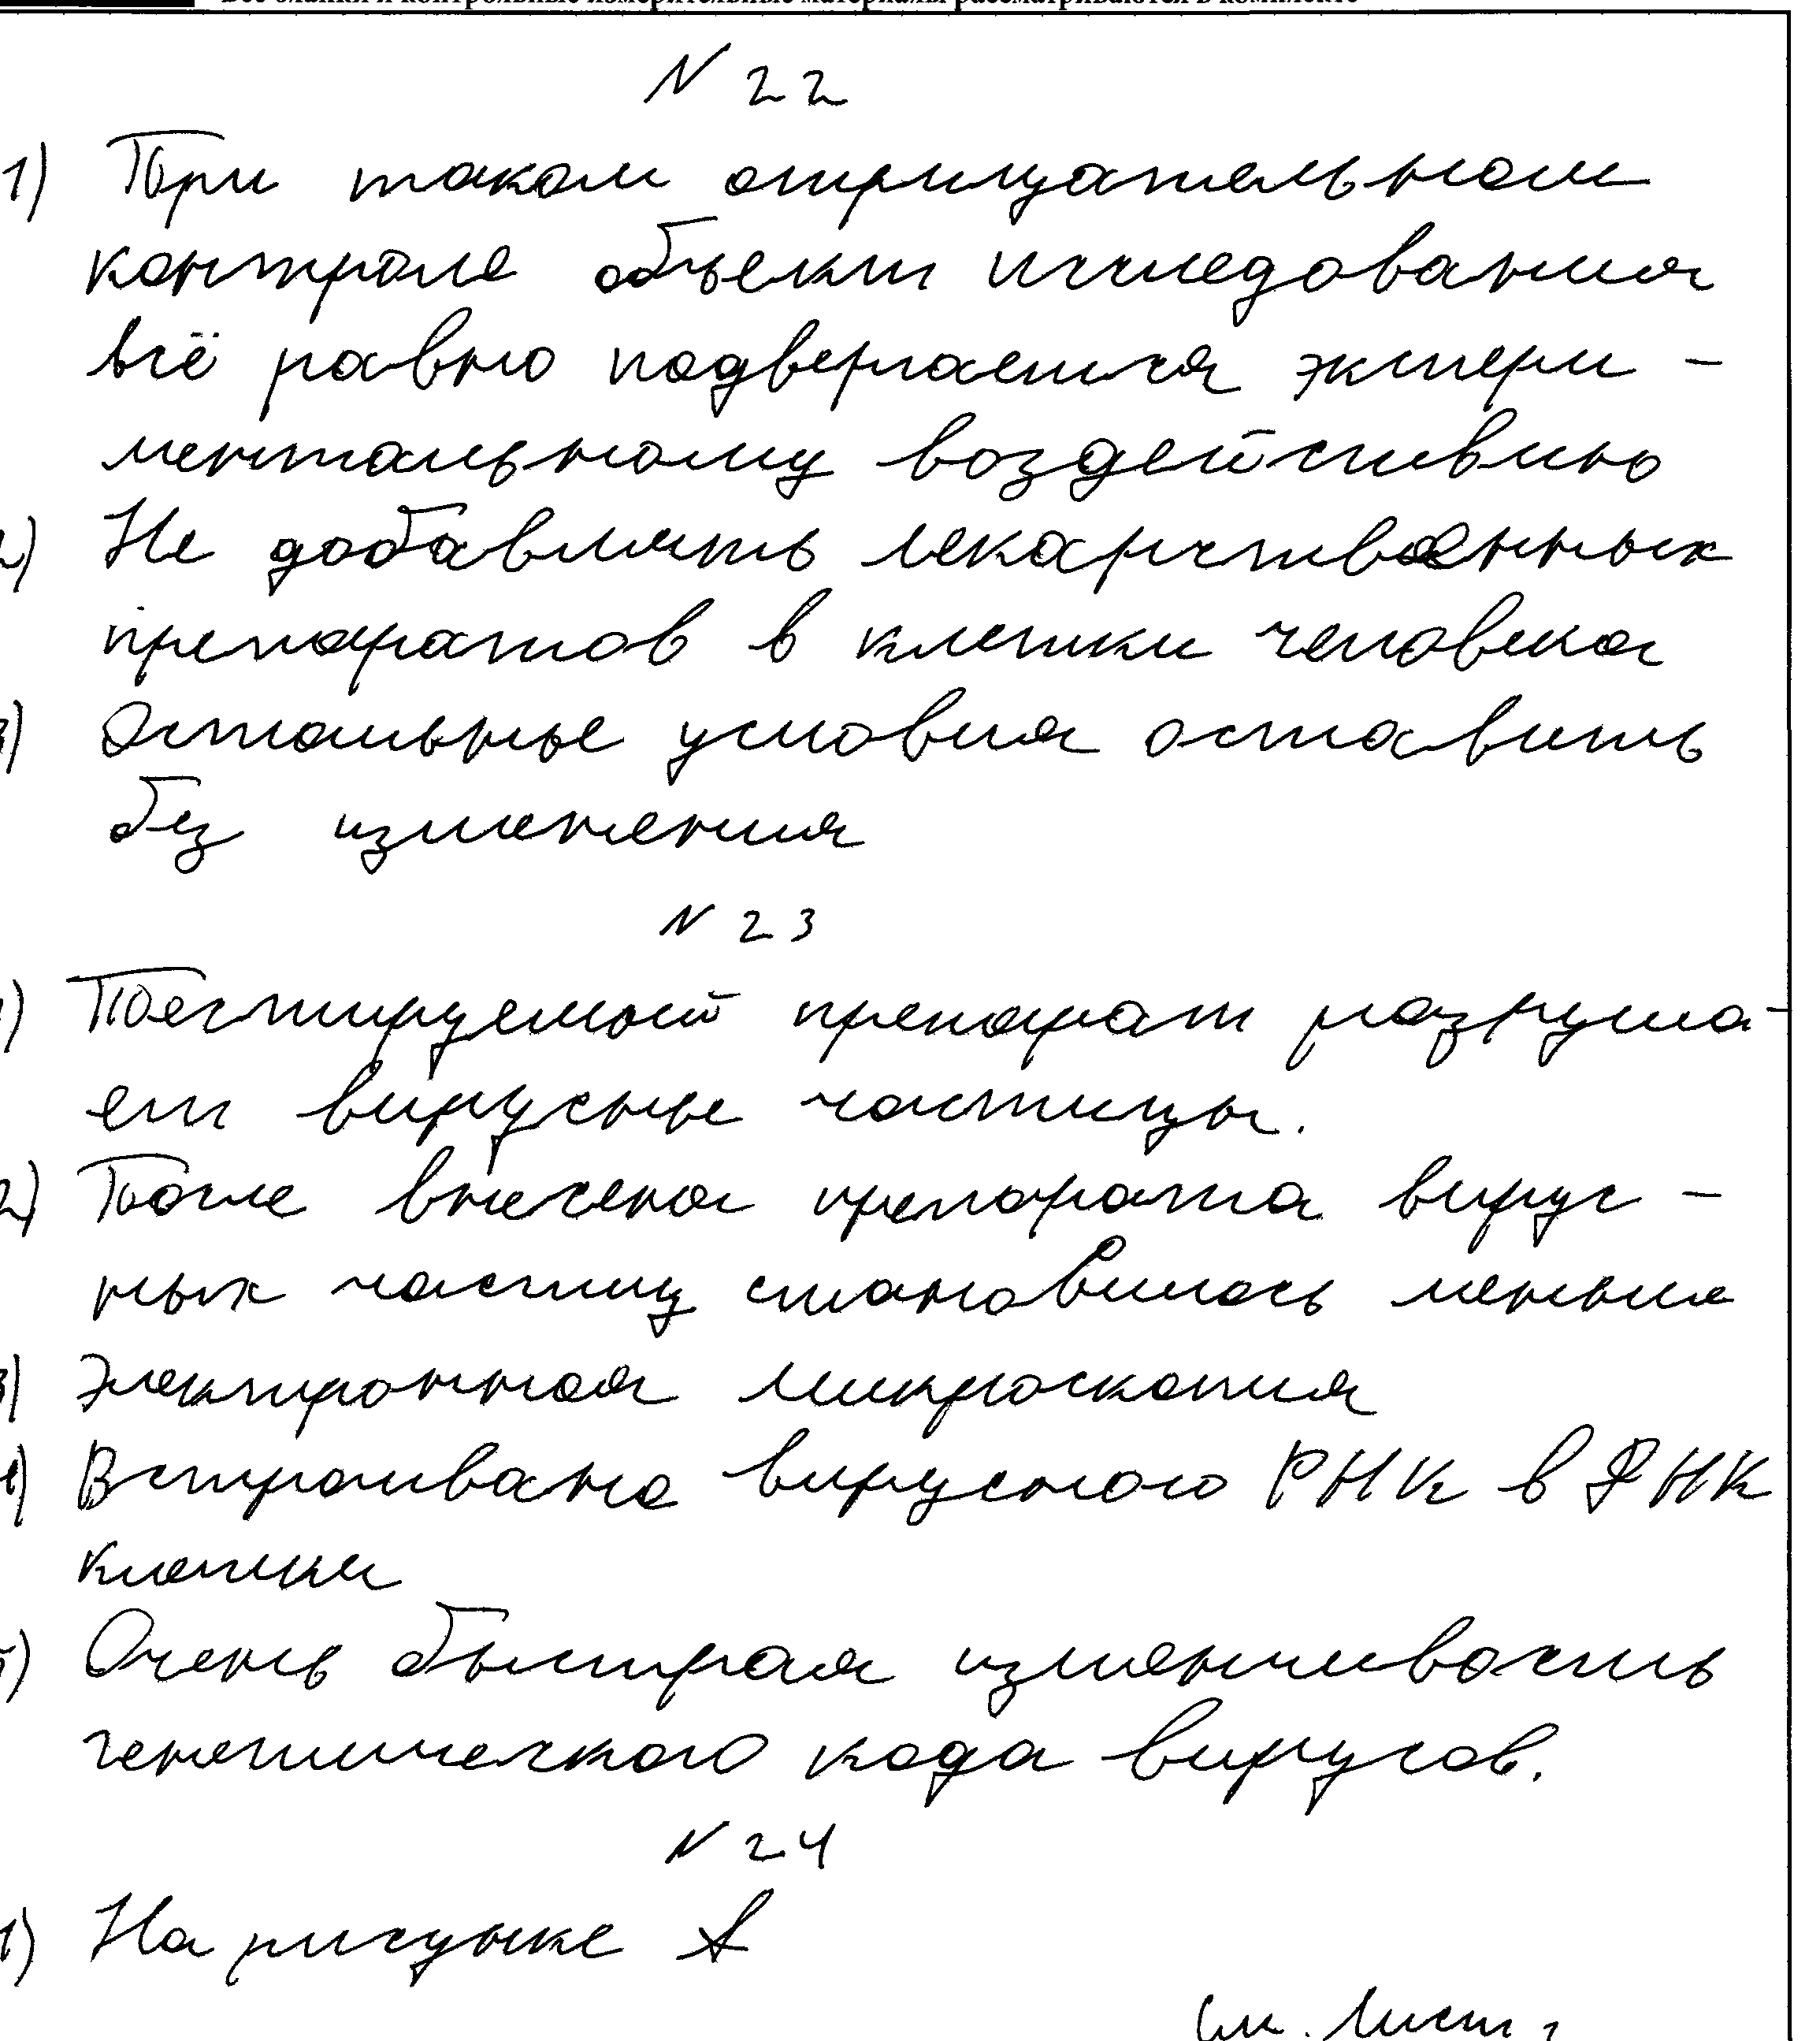 Все бланки и контрольные измерительные материалы рассматриваются в комплекте
N 22
1) При таком отрицательном
контроле объект исследования
всё равно подвергается экспери-
ментальному воздействию
2) Не добавлять лекарственных
препаратов в клетки человека
3) Остальные условия оставить
без изменения
N 23
1) Тестируемый препарат разруша-
ет вирусные частицы.
2) После внесена препарата вирус-
ных частиц становилось меньше
3) Электронная микроскопия
4) Встроивано вирусного РНК в ДНК
клетки
5) Очень быстрая изменчивость
генетического кода вирусов.
N 24
1) На рисунке А
См. Лист